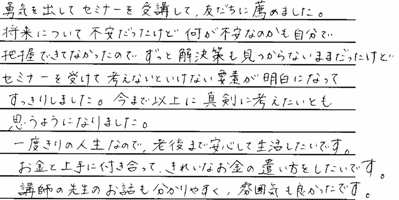 勇気を出してセミナーを受講して、友だちに薦めました。
将来について不安だったけど何が不安なのかも自分で
把握できてなかったのでずっと解決策も見つからないままだったけど
セミナーを受けて考えないといけない要素が明白になって
すっきりしました。今まで以上に真剣に考えたいとも
思うようになりました。
一度きりの人生なので、老後まで安心して生活したいです。
お金と上手に付き合って、きれいなお金の遣い方をしたいです。
講師の先生のお話も分かりやすく、雰囲気も良かったです。